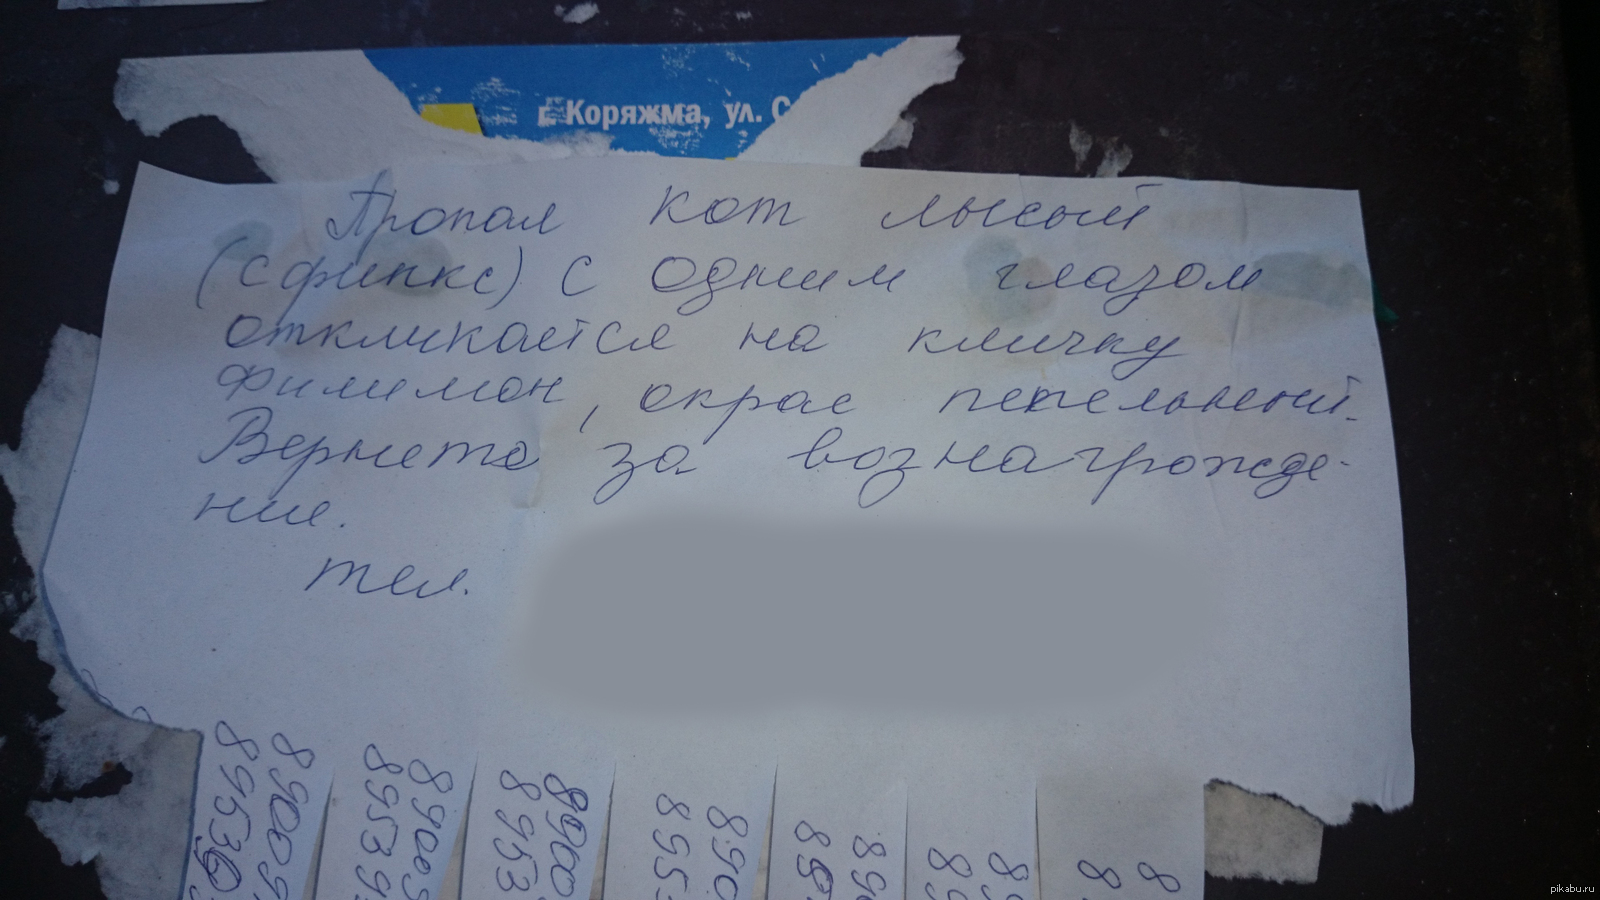 г. Коряжма, ул. С
Пропал кот лысый
(сфинкс) с одним глазом
откликается на кличку
Филимон, окрас пепельный.
Вернете за вознагрожде-
ние.
тел.
89009
8953
89009
89539
8900
8953
890
8953
890
89
89
89
8
8
pikabu.ru